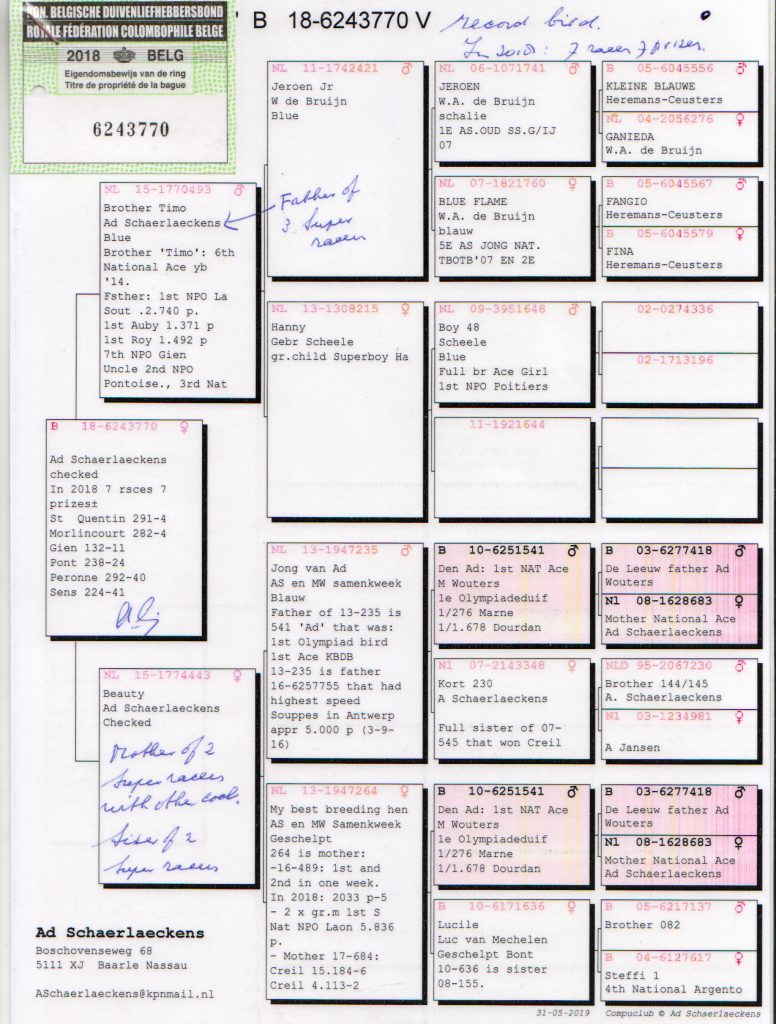 KON. BELGISCHE DUIVENLIEFHEBBERSBOND
ROYALE FÉDÉRATION COLOMBOPHILE BELGE
2018 BELG
Eigendomsbewijs van de ring
Titre de propriété de la bague
6243770
' B 18-6243770 V
record bird.
In 2018: 7 races 7 prizes.
NL 15-1770493 ♂
Brother Timo
Ad Schaerlaeckens
Blue
Brother 'Timo': 6th
National Ace yb
'14.
Fsther: 1st NPO La
Sout .2.740 p.
1st Auby 1.371 p
1st Roy 1.492 p
7th NPO Gien
Uncle 2nd NPO
Pontoise., 3rd Nat
B 18-6243770 ♀
Ad Schaerlaeckens
checked
In 2018 7 rsces 7
prizes±
St Quentin 291-4
Morlincourt 282-4
Gien 132-11
Pont 238-24
Peronne 292-40
Sens 224-41
NL 15-1774443 ♀
Beauty
Ad Schaerlaeckens
Checked
Mother of 2
super racers
with other cock.
Sister of 2
super racers
NL 11-1742421 ♂
Jeroen Jr
W de Bruijn
Blue
Father of
3 super
racers
NL 13-1308215 ♀
Hanny
Gebr Scheele
gr.child Superboy Ha
NL 13-1947235 ♂
Jong van Ad
AS en MW samenkweek
Blauw
Father of 13-235 is
541 'Ad' that was:
1st Olympiad bird
1st Ace KBDB
13-235 is father
16-6257755 that had
highest speed
Souppes in Antwerp
appr 5.000 p (3-9-
16)
NL 13-1947264 ♀
My best breeding hen
AS en MW Samenkweek
Geschelpt
264 is mother:
-16-489: 1st and
2nd in one week.
In 2018: 2033 p-5
- 2 x gr.m 1st S
Nat NPO Laon 5.836
p.
- Mother 17-684:
Creil 15.184-6
Creil 4.113-2
NL 06-1071741 ♂
JEROEN
W.A. de Bruijn
schalie
1E AS.OUD SS.G/IJ
07
NL 07-1821760 ♀
BLUE FLAME
W.A. de Bruijn
blauw
5E AS JONG NAT.
TBOTB'07 EN 2E
NL 09-3951648 ♂
Boy 48
Scheele
Blue
Full br Ace Girl
1st NPO Poitiers
11-1921644
B 10-6251541 ♂
Den Ad: 1st NAT Ace
M Wouters
1e Olympiadeduif
1/276 Marne
1/1.678 Dourdan
Nl 07-2143348 ♀
Kort 230
A Schaerlaeckens
Full sister of 07-
545 that won Creil
B 10-6251541 ♂
Den Ad: 1st NAT Ace
M Wouters
1e Olympiadeduif
1/276 Marne
1/1.678 Dourdan
B 10-6171636 ♀
Lucile
Luc van Mechelen
Geschelpt Bont
10-636 is sister
08-155.
B 05-6045556 ♂
KLEINE BLAUWE
Heremans-Ceusters
NL 04-2056276 ♀
GANIEDA
W.A. de Bruijn
B 05-6045567 ♂
FANGIO
Heremans-Ceusters
B 05-6045579 ♀
FINA
Heremans-Ceusters
02-0274336
02-1713196
B 03-6277418 ♂
De Leeuw father Ad
Wouters
Nl 08-1628683 ♀
Mother National Ace
Ad Schaerlaeckens
NLD 95-2067230 ♂
Brother 144/145
A. Schaerlaeckens
Nl 03-1234981 ♀
A Jansen
B 03-6277418 ♂
De Leeuw father Ad
Wouters
Nl 08-1628683 ♀
Mother National Ace
Ad Schaerlaeckens
B 05-6217137 ♂
Brother 082
B 04-6127617 ♀
Steffi 1
4th National Argento
Ad Schaerlaeckens
Boschovenseweg 68
5111 XJ Baarle Nassau
ASchaerlaeckens@kpnmail.nl
31-05-2019 Compuclub © Ad Schaerlaeckens